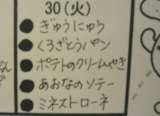 30(火)
●ぎゅうにゅう
●くろざとうパン
●ポテトのクリームやき
●あおなのソテー
●ミネストローネ